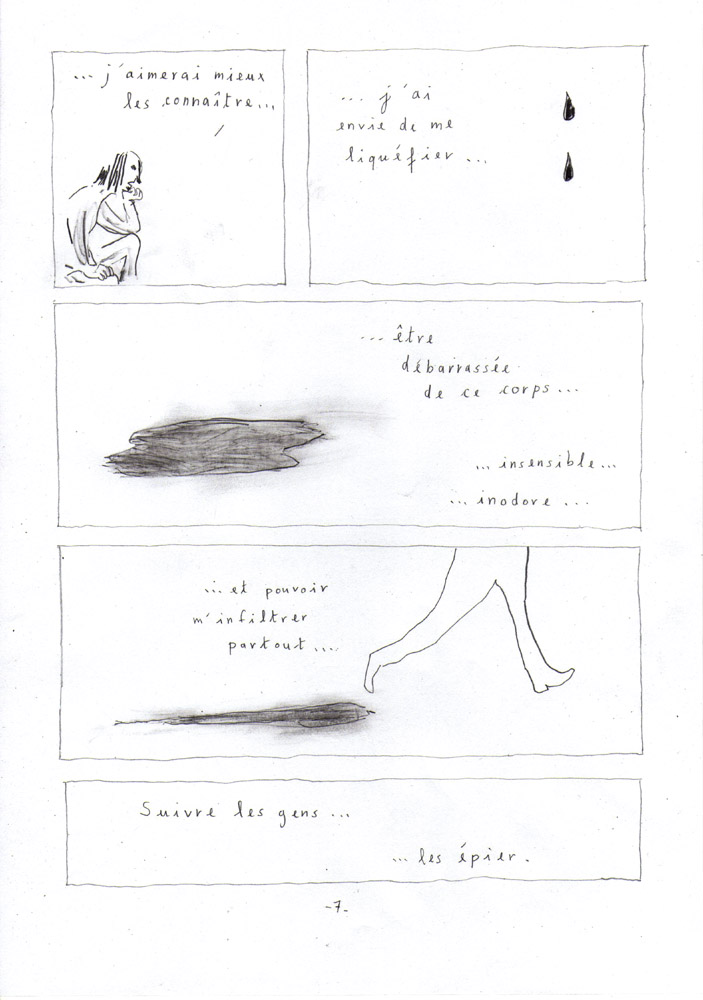 ... j'aimerai mieux
les connaître...
... j'ai
envie de me
liquéfier ...
... être
débarrassée
de ce corps ...
... insensible...
... inodore ...
... et pouvoir
m'infiltrer
partout ...
Suivre les gens ...
... les épier.
-7-